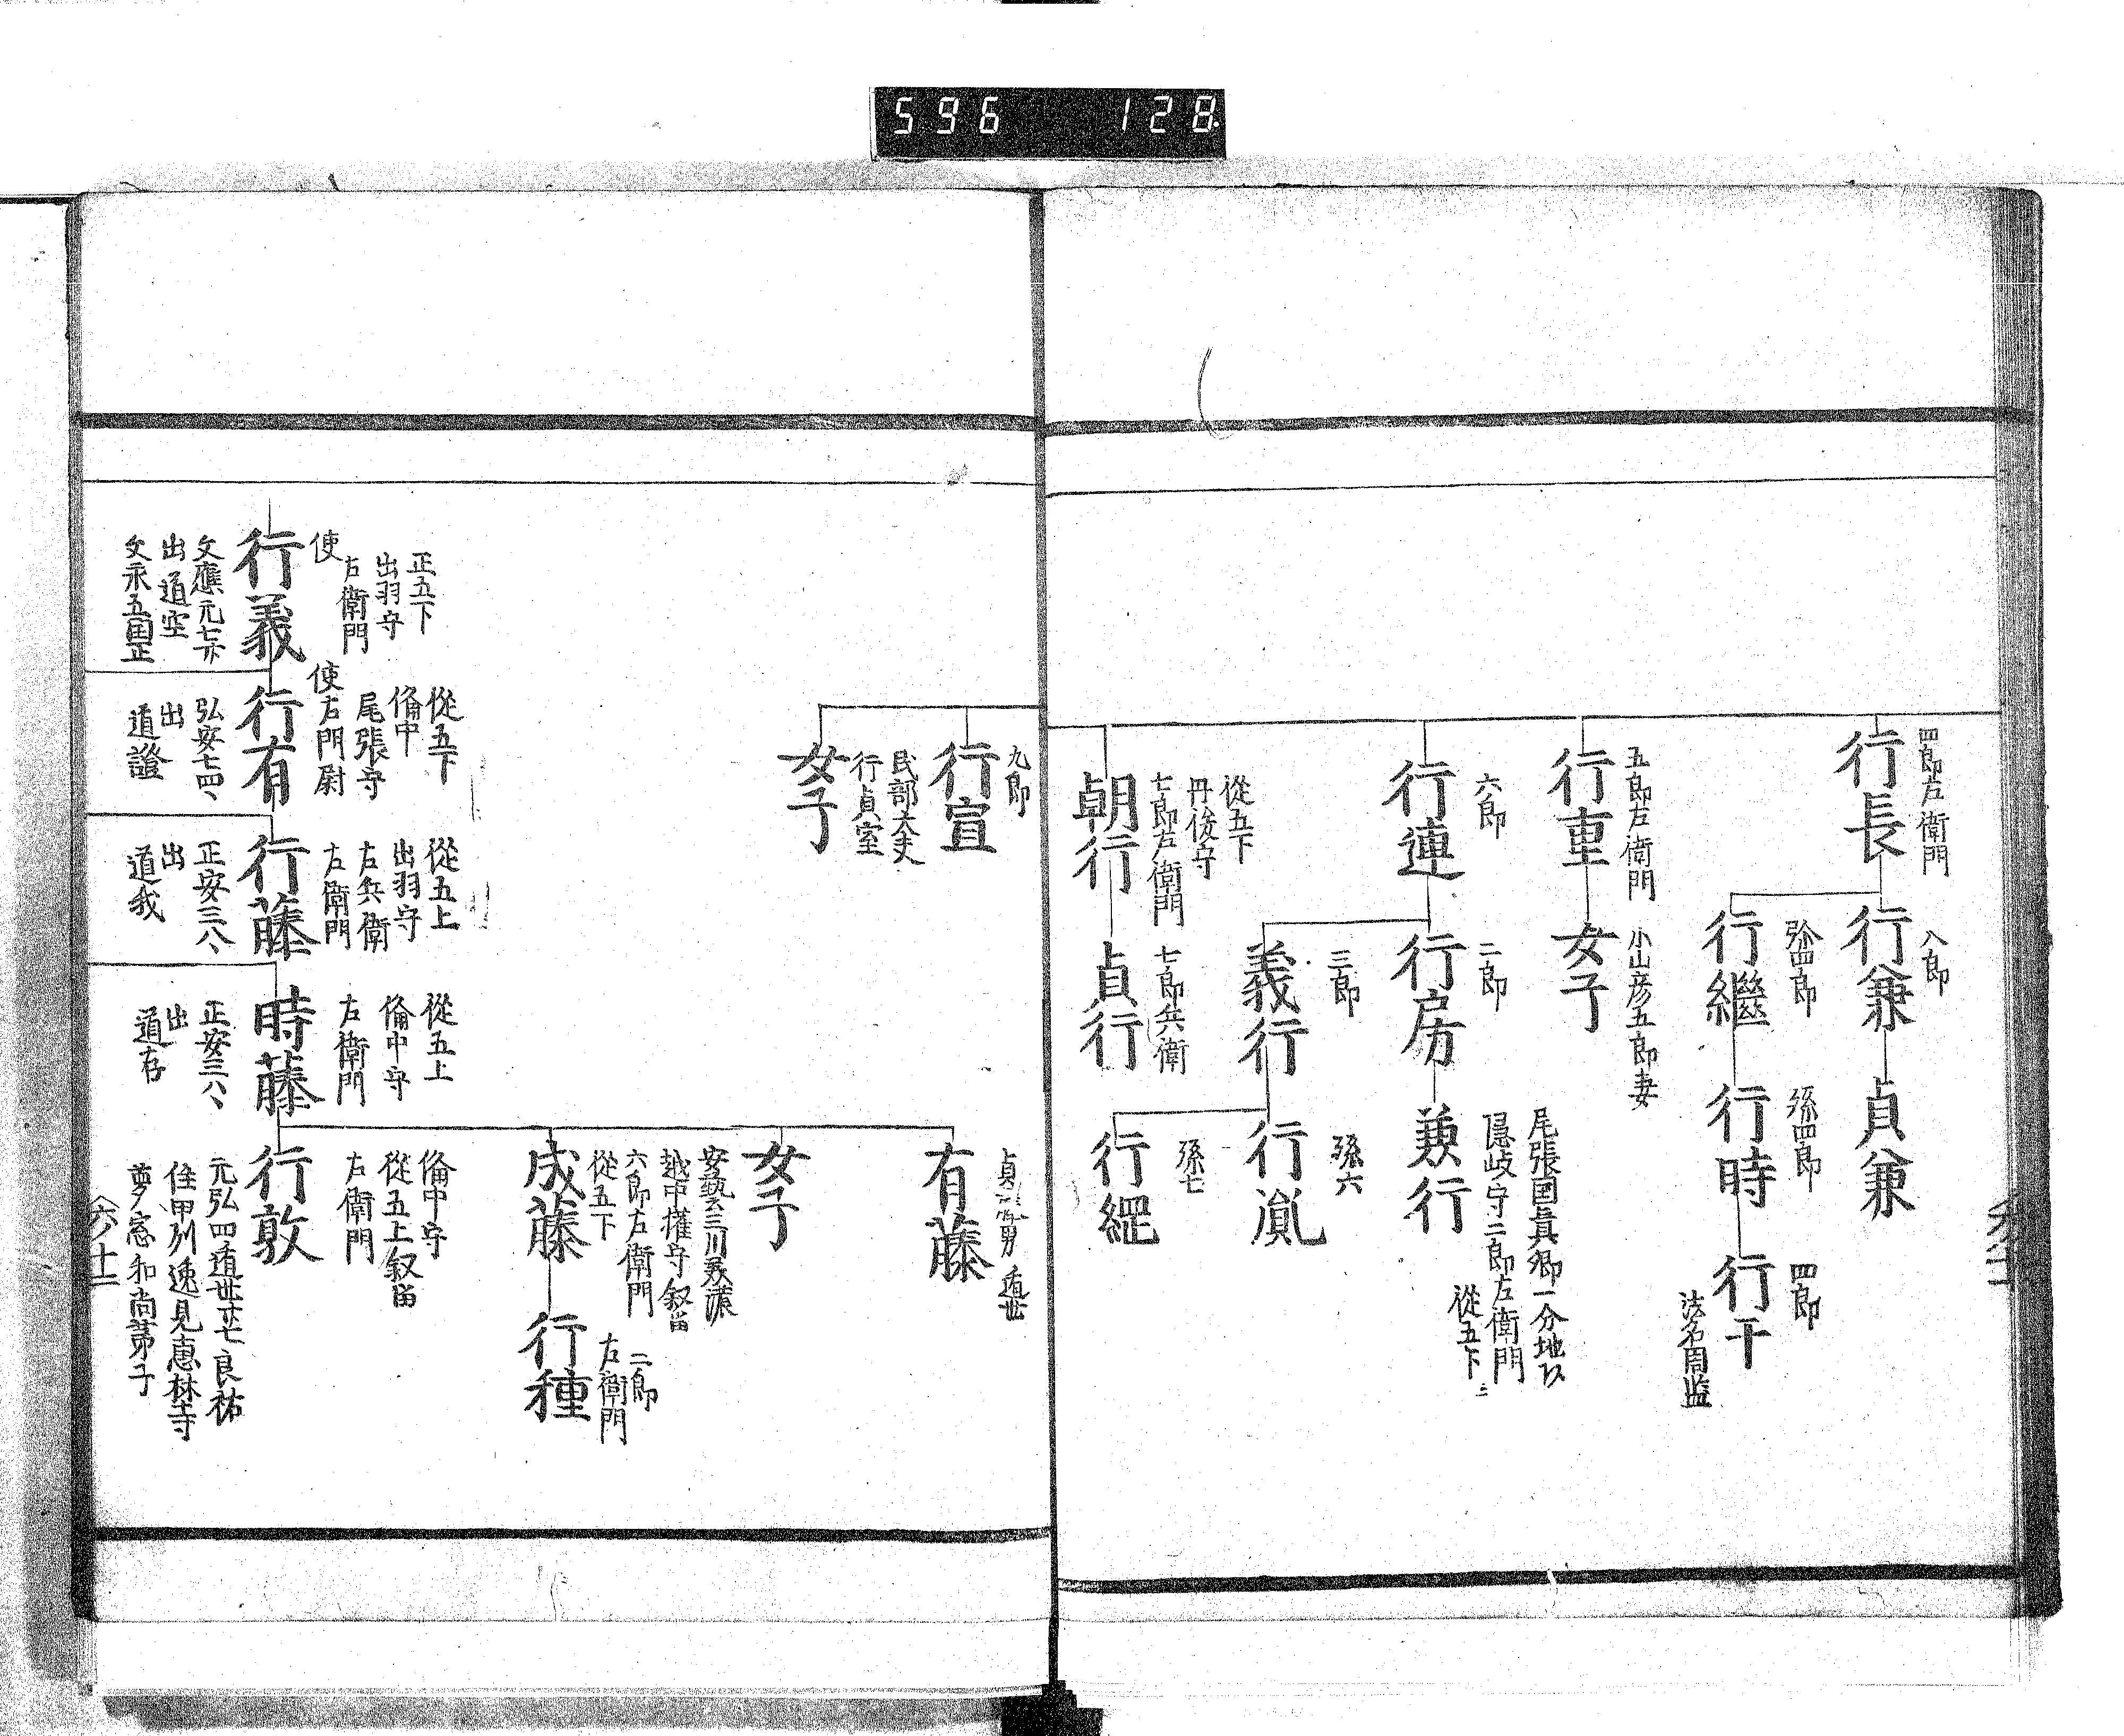 596 128
四郎左衛門
行長
八郎
行兼
貞兼
弥四郎
行繼
孫四郎
行時
四郎
行干
法名周監
五郎左衛門
行重
小山彦五郎妻
女子
六郎
行連
二郎
行房
尾張国眞郷一分地以
隠岐守二郎左衛門
從五下
兼行
三郎
義行
孫六
行胤
孫七
行繩
從五下
丹後守
七郎左衛門
朝行
七郎兵衛
貞行
九郎
行宣
民部大夫
行貞室
女子
遁世
有藤
女子
安藝三川美濃
越中權守叙留
六郎左衛門
從五下
成藤
二郎
左衛門
行種
正五下
出羽守
左衛門
使
行義
文應元七
出道空
文永五閏正
從五下
備中
尾張守
使左門尉
行有
弘安七四、
出
道證
從五上
出羽守
左兵衛
左衛門
行藤
正安三八、
出
道我
從五上
備中守
左衛門
時藤
正安三八、
出
道存
備中守
從五上叙留
左衛門
行敦
元弘四遁世廿七良祐
住甲州逸見惠林寺
夢窓和尚弟子
六十二